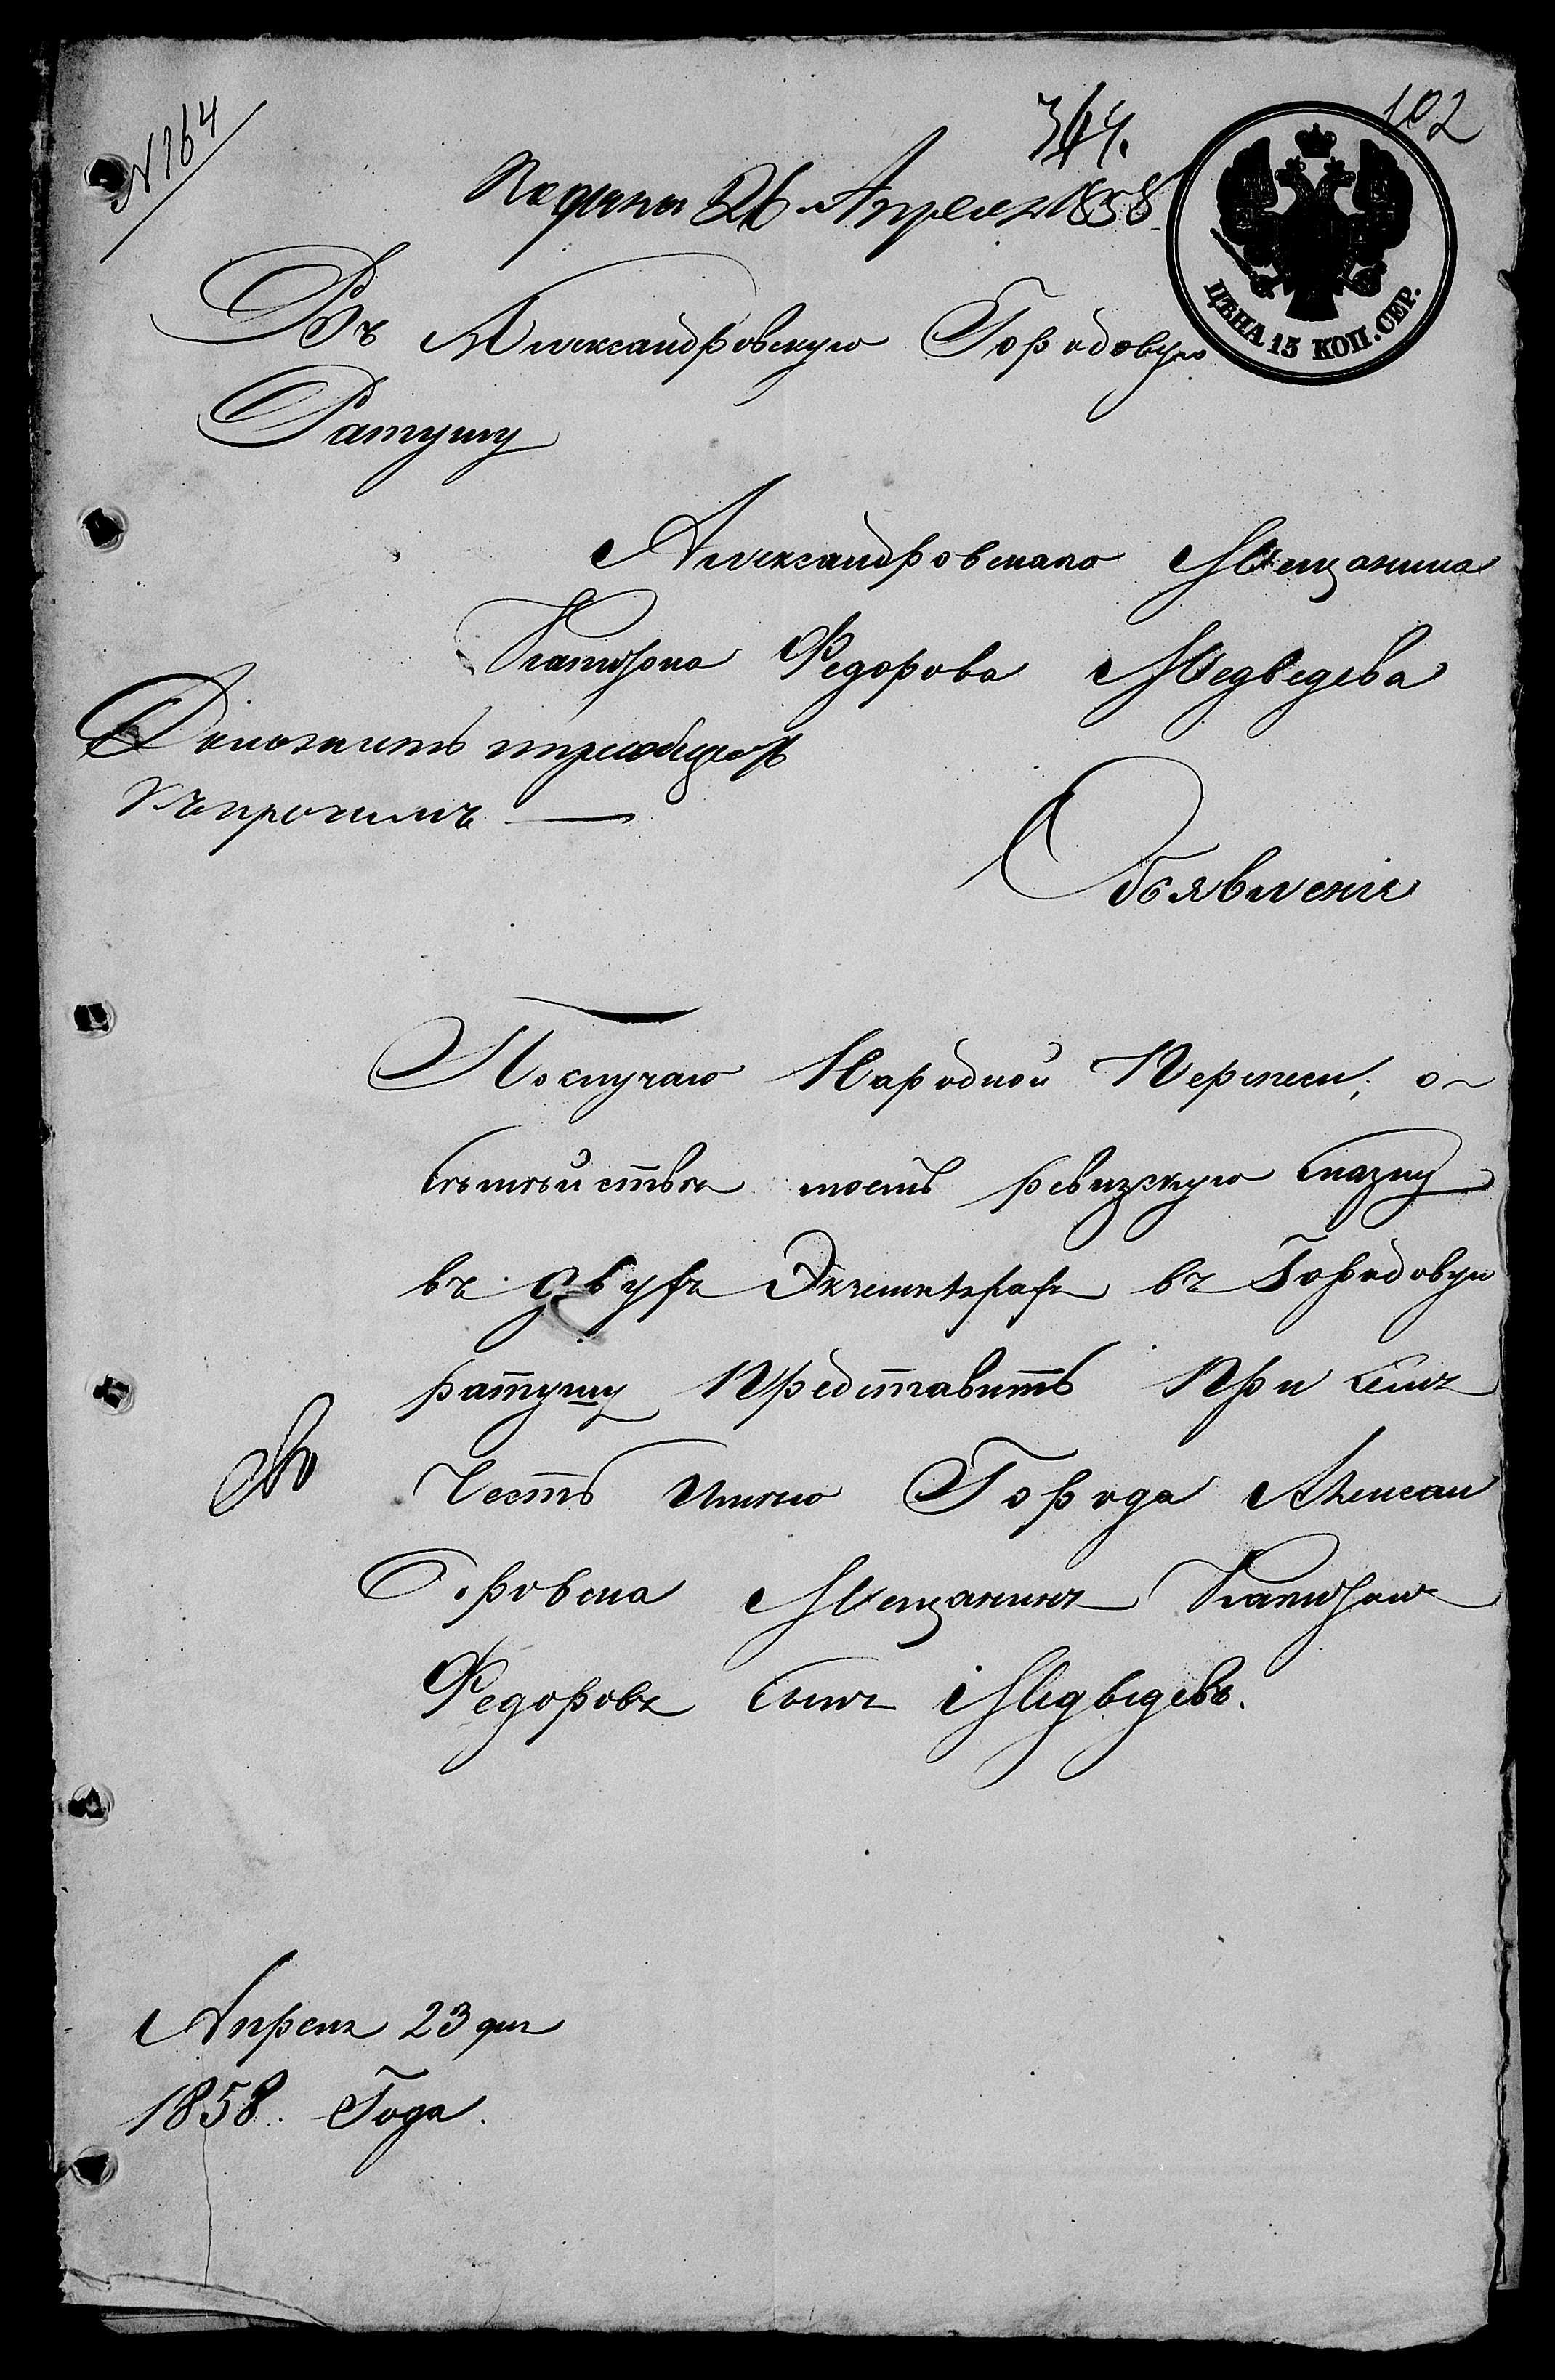 № 164
344.
102
Подано 26 Апреля 1858
ЦѢНА 15 КОП. СЕР.
Въ Александровскую Городовую
Ратушу
Александровскаго Мещанина
Платона Федорова Медведева
Доложить приобщить
къ прочимъ —
Объявленіе
Послучаю Народной Переписи, о
Семействе моемъ ревизскую Сказку
въ двухъ Экземплярахъ въ Городовую
ратушу Представить При семъ
Честь имею Города Алексан
дровска Мещанинъ Платонъ
Федоровъ Сынъ Медведевъ.
Апреля 23 дня
1858. Года.